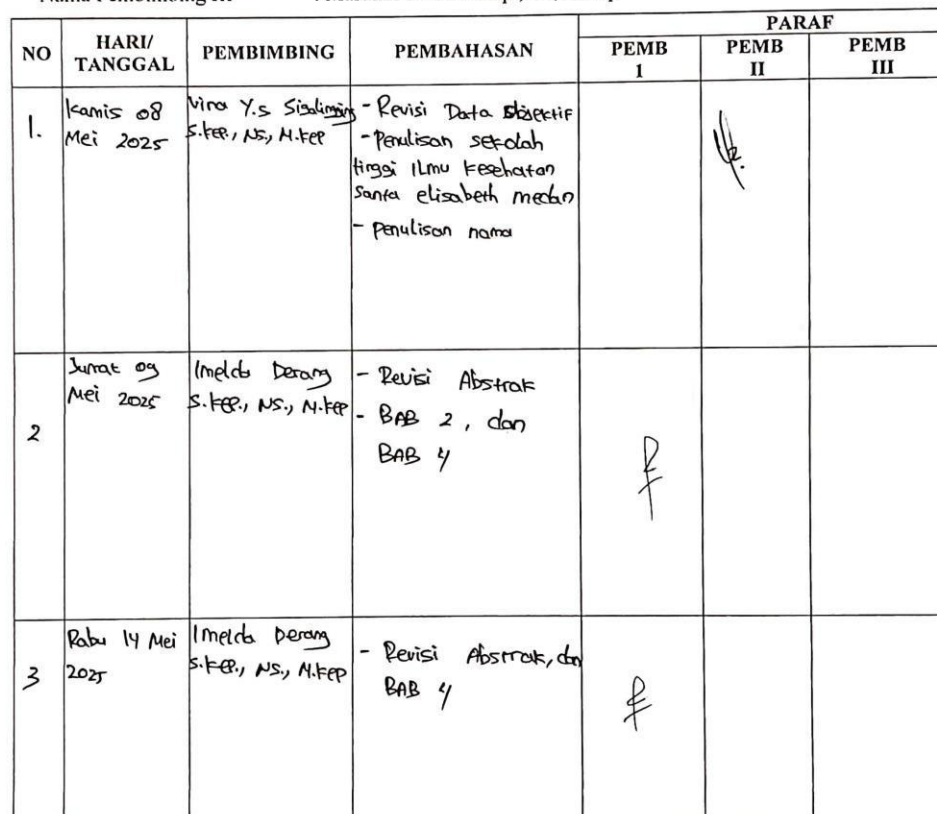 PARAF
NO HARI/ TANGGAL PEMBIMBING PEMBAHASAN PEMB 1 PEMB II PEMB III
1.
Kamis 08
Mei 2025
Vina Y.s Sigalingging
S.kep., NS., M.kep
- Revisi Data Objektif
- Penulisan sekolah
tinggi Ilmu kesehatan
Santa elisabeth medan
- penulisan nama
2
Jumat 09
Mei 2025
Imelda Derang
S.kep., NS., M.kep
- Revisi Abstrak
- BAB 2, dan
BAB 4
3
Rabu 14 Mei
2025
Imelda Derang
S.kep., NS., M.kep
- Revisi Abstrak, dan
BAB 4